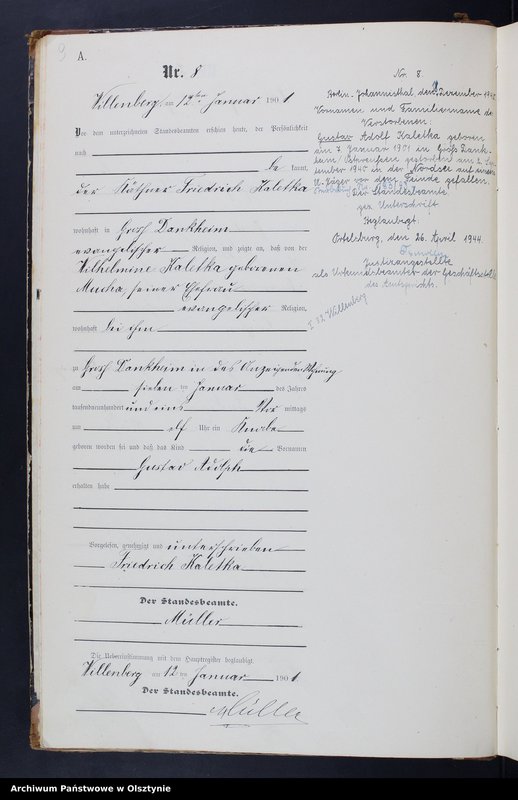 A.
Nr. 8
Willenberg am 12ten Januar 1901
Vor dem unterzeichneten Standesbeamten erschien heute, der Persönlichkeit
nach
be kannt,
der Käthner Friedrich Kaletka
wohnhaft in Groß Dankheim
evangelischer Religion, und zeigte an, daß von der
Wilhelmine Kaletka geborenen
Mucha, seiner Ehefrau
evangelischer Religion,
wohnhaft bei ihm
zu Groß Dankheim in des Anzeigenden Wohnung
am sieben ten Januar des Jahres
tausendneunhundert und eins Vor mittags
um elf Uhr ein Knabe
geboren worden sei und daß das Kind die Vornamen
Gustav Adolph
erhalten habe
Vorgelesen, genehmigt und unterschrieben
Friedrich Kaletka
Der Standesbeamte.
Müller
Die Uebereinstimmung mit dem Hauptregister beglaubigt
Willenberg am 12 ten Januar 1901
Der Standesbeamte.
Müller
Nr. 8
Berlin-Johannisthal den Dezember
Vornamen und Familienname des
Verstorbenen:
Gustav Adolf Kaletka geboren
am 7. Januar 1901 in Groß Dank-
heim, Ostpreußen gestorben am
in der Nordsee auf
U-Jäger vor dem Feinde gefallen.
Der Standesbeamte
gez. Unterschrift
Beglaubigt.
Ortelsburg, den 26. April 1944.
Justizangestellte
als Urkundsbeamter der Geschäftsstelle
des Amtsgerichts.
Willenberg
Archiwum Państwowe w Olsztynie